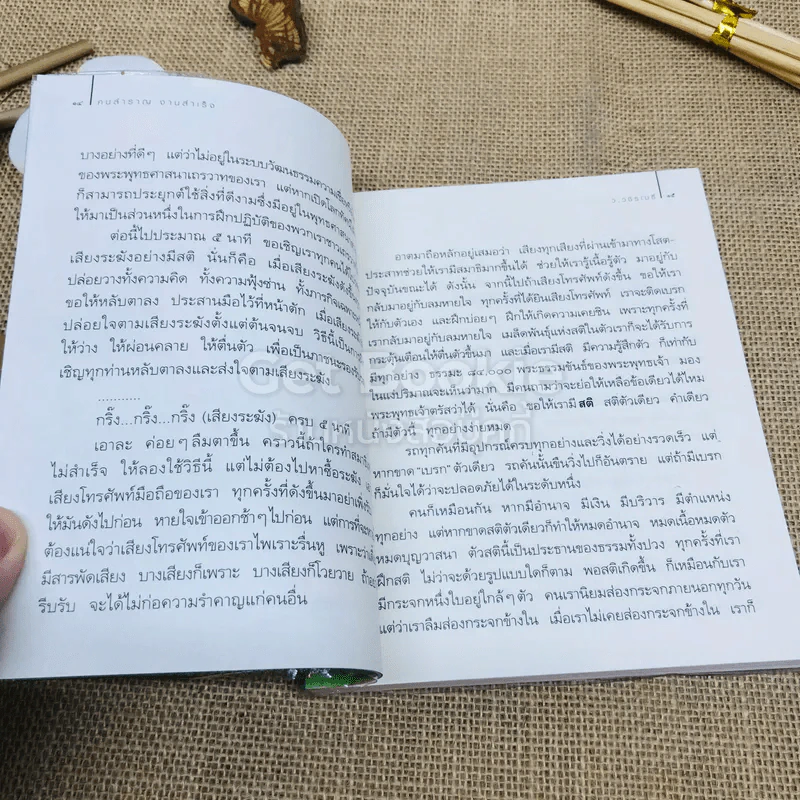 ๑๔ คนสำราญ งานสำเร็จ
บางอย่างที่ดีๆ แต่ว่าไม่อยู่ในระบบวัฒนธรรมความเชื่อ
ของพระพุทธศาสนาเถรวาทของเรา แต่หากเปิดโลกทัศน์
ก็สามารถประยุกต์ใช้สิ่งที่ดีงามซึ่งมีอยู่ในพุทธศาสนา
ให้มาเป็นส่วนหนึ่งในการฝึกปฏิบัติของพวกเราชาว
ต่อนี้ไปประมาณ ๕ นาที ขอเชิญเราทุกคนได้
เสียงระฆังอย่างมีสติ นั่นก็คือ เมื่อเสียงระฆังดังขึ้น
ปล่อยวางทั้งความคิด ทั้งความฟุ้งซ่าน ทั้งภารกิจ
ขอให้หลับตาลง ประสานมือไว้ที่หน้าตัก เมื่อเสียง
ปล่อยใจตามเสียงระฆังตั้งแต่ต้นจนจบ วิธีนี้เป็นการ
ให้ว่าง ให้ผ่อนคลาย ให้ตื่นตัว เพื่อเป็นภาชนะรองรับ
เชิญทุกท่านหลับตาลงและส่งใจตามเสียงระฆัง
...........
กริ๊ง...กริ๊ง...กริ๊ง (เสียงระฆัง) ครบ ๕ นาที
เอาละ ค่อยๆ ลืมตาขึ้น คราวนี้ถ้าใครทำสมาธิ
ไม่สำเร็จ ให้ลองใช้วิธีนี้ แต่ไม่ต้องไปหาซื้อระฆัง
เสียงโทรศัพท์มือถือของเรา ทุกครั้งที่ดังขึ้นมาอย่าเพิ่งรับ
ให้มันดังไปก่อน หายใจเข้าออกช้าๆ ไปก่อน แต่การที่จะ
ต้องแน่ใจว่าเสียงโทรศัพท์ของเราไพเราะรื่นหู เพราะว่า
มีสารพัดเสียง บางเสียงก็เพราะ บางเสียงก็โวยวาย ถ้า
รีบรับ จะได้ไม่ก่อความรำคาญแก่คนอื่น
ว.วชิรเมธี ๑๕
อาตมาถือหลักอยู่เสมอว่า เสียงทุกเสียงที่ผ่านเข้ามาทางโสต-
ประสาทช่วยให้เรามีสมาธิมากขึ้นได้ ช่วยให้เรารู้เนื้อรู้ตัว มาอยู่กับ
ปัจจุบันขณะได้ ดังนั้น จากนี้ไปถ้าเสียงโทรศัพท์ดังขึ้น ขอให้เรา
กลับมาอยู่กับลมหายใจ ทุกครั้งที่ได้ยินเสียงโทรศัพท์ เราจะติดเบรก
ให้กับตัวเอง และฝึกบ่อยๆ ฝึกให้เกิดความเคยชิน เพราะทุกครั้งที่
เรากลับมาอยู่กับลมหายใจ เมล็ดพันธุ์แห่งสติในตัวเราก็จะได้รับการ
กระตุ้นเตือนให้ตื่นตัวขึ้นมา และเมื่อเรามีสติ มีความรู้สึกตัว ก็เท่ากับ
มีทุกอย่าง ธรรมะ ๘๔,๐๐๐ พระธรรมขันธ์ของพระพุทธเจ้า มอง
ในแง่ปริมาณจะเห็นว่ามาก มีคนถามว่าจะย่อให้เหลือข้อเดียวได้ไหม
พระพุทธเจ้าตรัสว่าได้ นั่นคือ ขอให้เรามี สติ สติตัวเดียว คำเดียว
ถ้ามีตัวนี้ ทุกอย่างง่ายหมด
รถทุกคันที่มีอุปกรณ์ครบทุกอย่างและวิ่งได้อย่างรวดเร็ว แต่
หากขาด "เบรก" ตัวเดียว รถคันนั้นขืนวิ่งไปก็อันตราย แต่ถ้ามีเบรก
ก็มั่นใจได้ว่าจะปลอดภัยได้ในระดับหนึ่ง
คนก็เหมือนกัน หากมีอำนาจ มีเงิน มีบริวาร มีตำแหน่ง
ทุกอย่าง แต่หากขาดสติตัวเดียวก็ทำให้หมดอำนาจ หมดเนื้อหมดตัว
หมดบุญวาสนา ตัวสตินี้เป็นประธานของธรรมทั้งปวง ทุกครั้งที่เรา
ฝึกสติ ไม่ว่าจะด้วยรูปแบบใดก็ตาม พอสติเกิดขึ้น ก็เหมือนกับเรา
มีกระจกหนึ่งใบอยู่ใกล้ๆ ตัว คนเรานิยมส่องกระจกภายนอกทุกวัน
แต่ว่าเราลืมส่องกระจกข้างใน เมื่อเราไม่เคยส่องกระจกข้างใน เราก็
Get Book